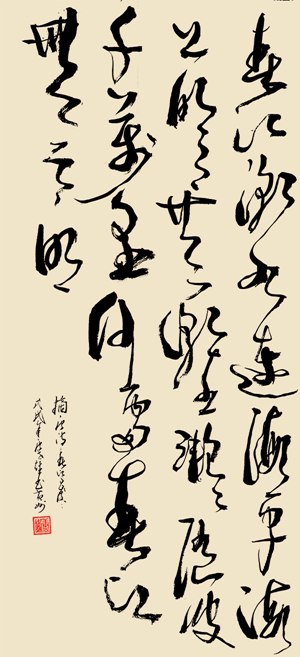 春江潮水連海平海
上明月共潮生灔〻隨波
千萬里何處春江
無月明
摘唐詩春江花月夜
戊戌年